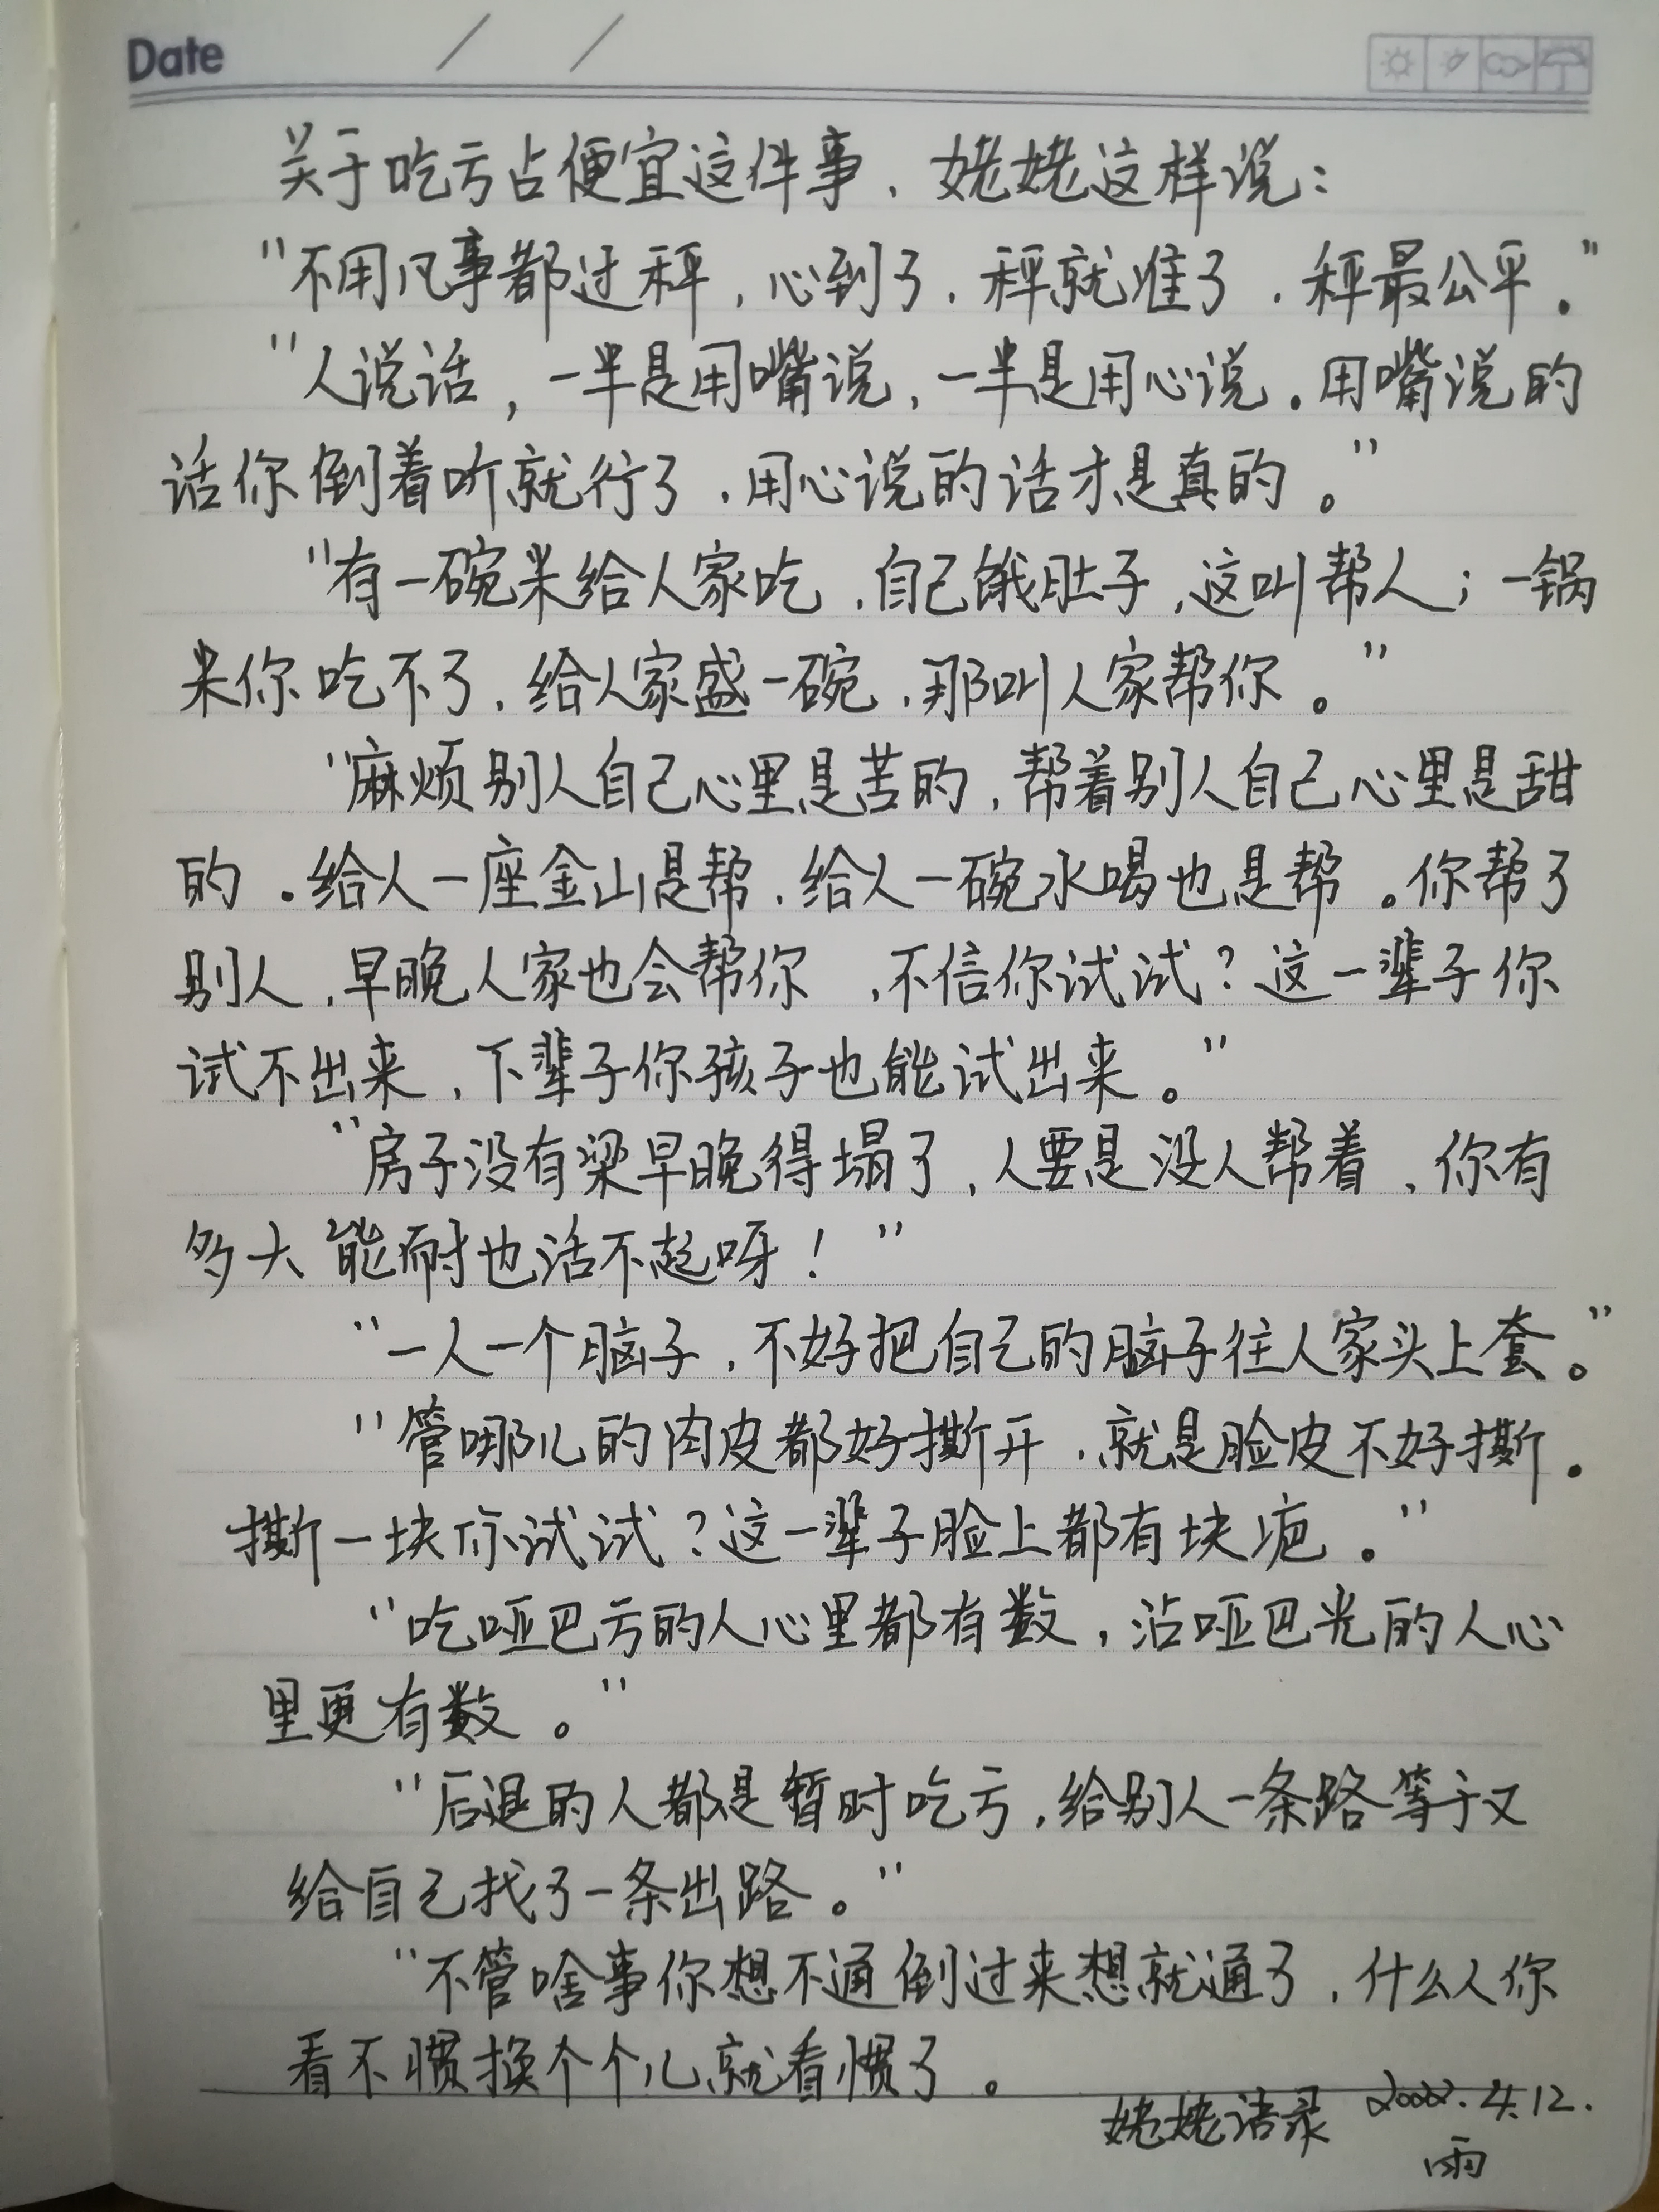 Date / /
关于吃亏占便宜这件事，姥姥这样说：
“不用凡事都过秤，心到了，秤就准了，秤最公平。”
“人说话，一半是用嘴说，一半是用心说。用嘴说的
话你倒着听就行了，用心说的话才是真的。”
“有一碗米给人家吃，自己饿肚子，这叫帮人；一锅
米你吃不了，给人家盛一碗，那叫人家帮你。”
“麻烦别人自己心里是苦的，帮着别人自己心里是甜
的。给人一座金山是帮，给人一碗水喝也是帮。你帮了
别人，早晚人家也会帮你，不信你试试？这一辈子你
试不出来，下辈子你孩子也能试出来。”
“房子没有梁早晚得塌了，人要是没人帮着，你有
多大能耐也活不起呀！”
“一人一个脑子，不好把自己的脑子往人家头上套。”
“管哪儿的肉皮都好撕开，就是脸皮不好撕。
撕一块你试试？这一辈子脸上都有块疤。”
“吃哑巴亏的人心里都有数，沾哑巴光的人心
里更有数。”
“后退的人都是暂时吃亏，给别人一条路等于又
给自己找了一条出路。”
“不管啥事你想不通倒过来想就通了，什么人你
看不惯换个个儿就看惯了。
姥姥语录 2022.4.12.
雨